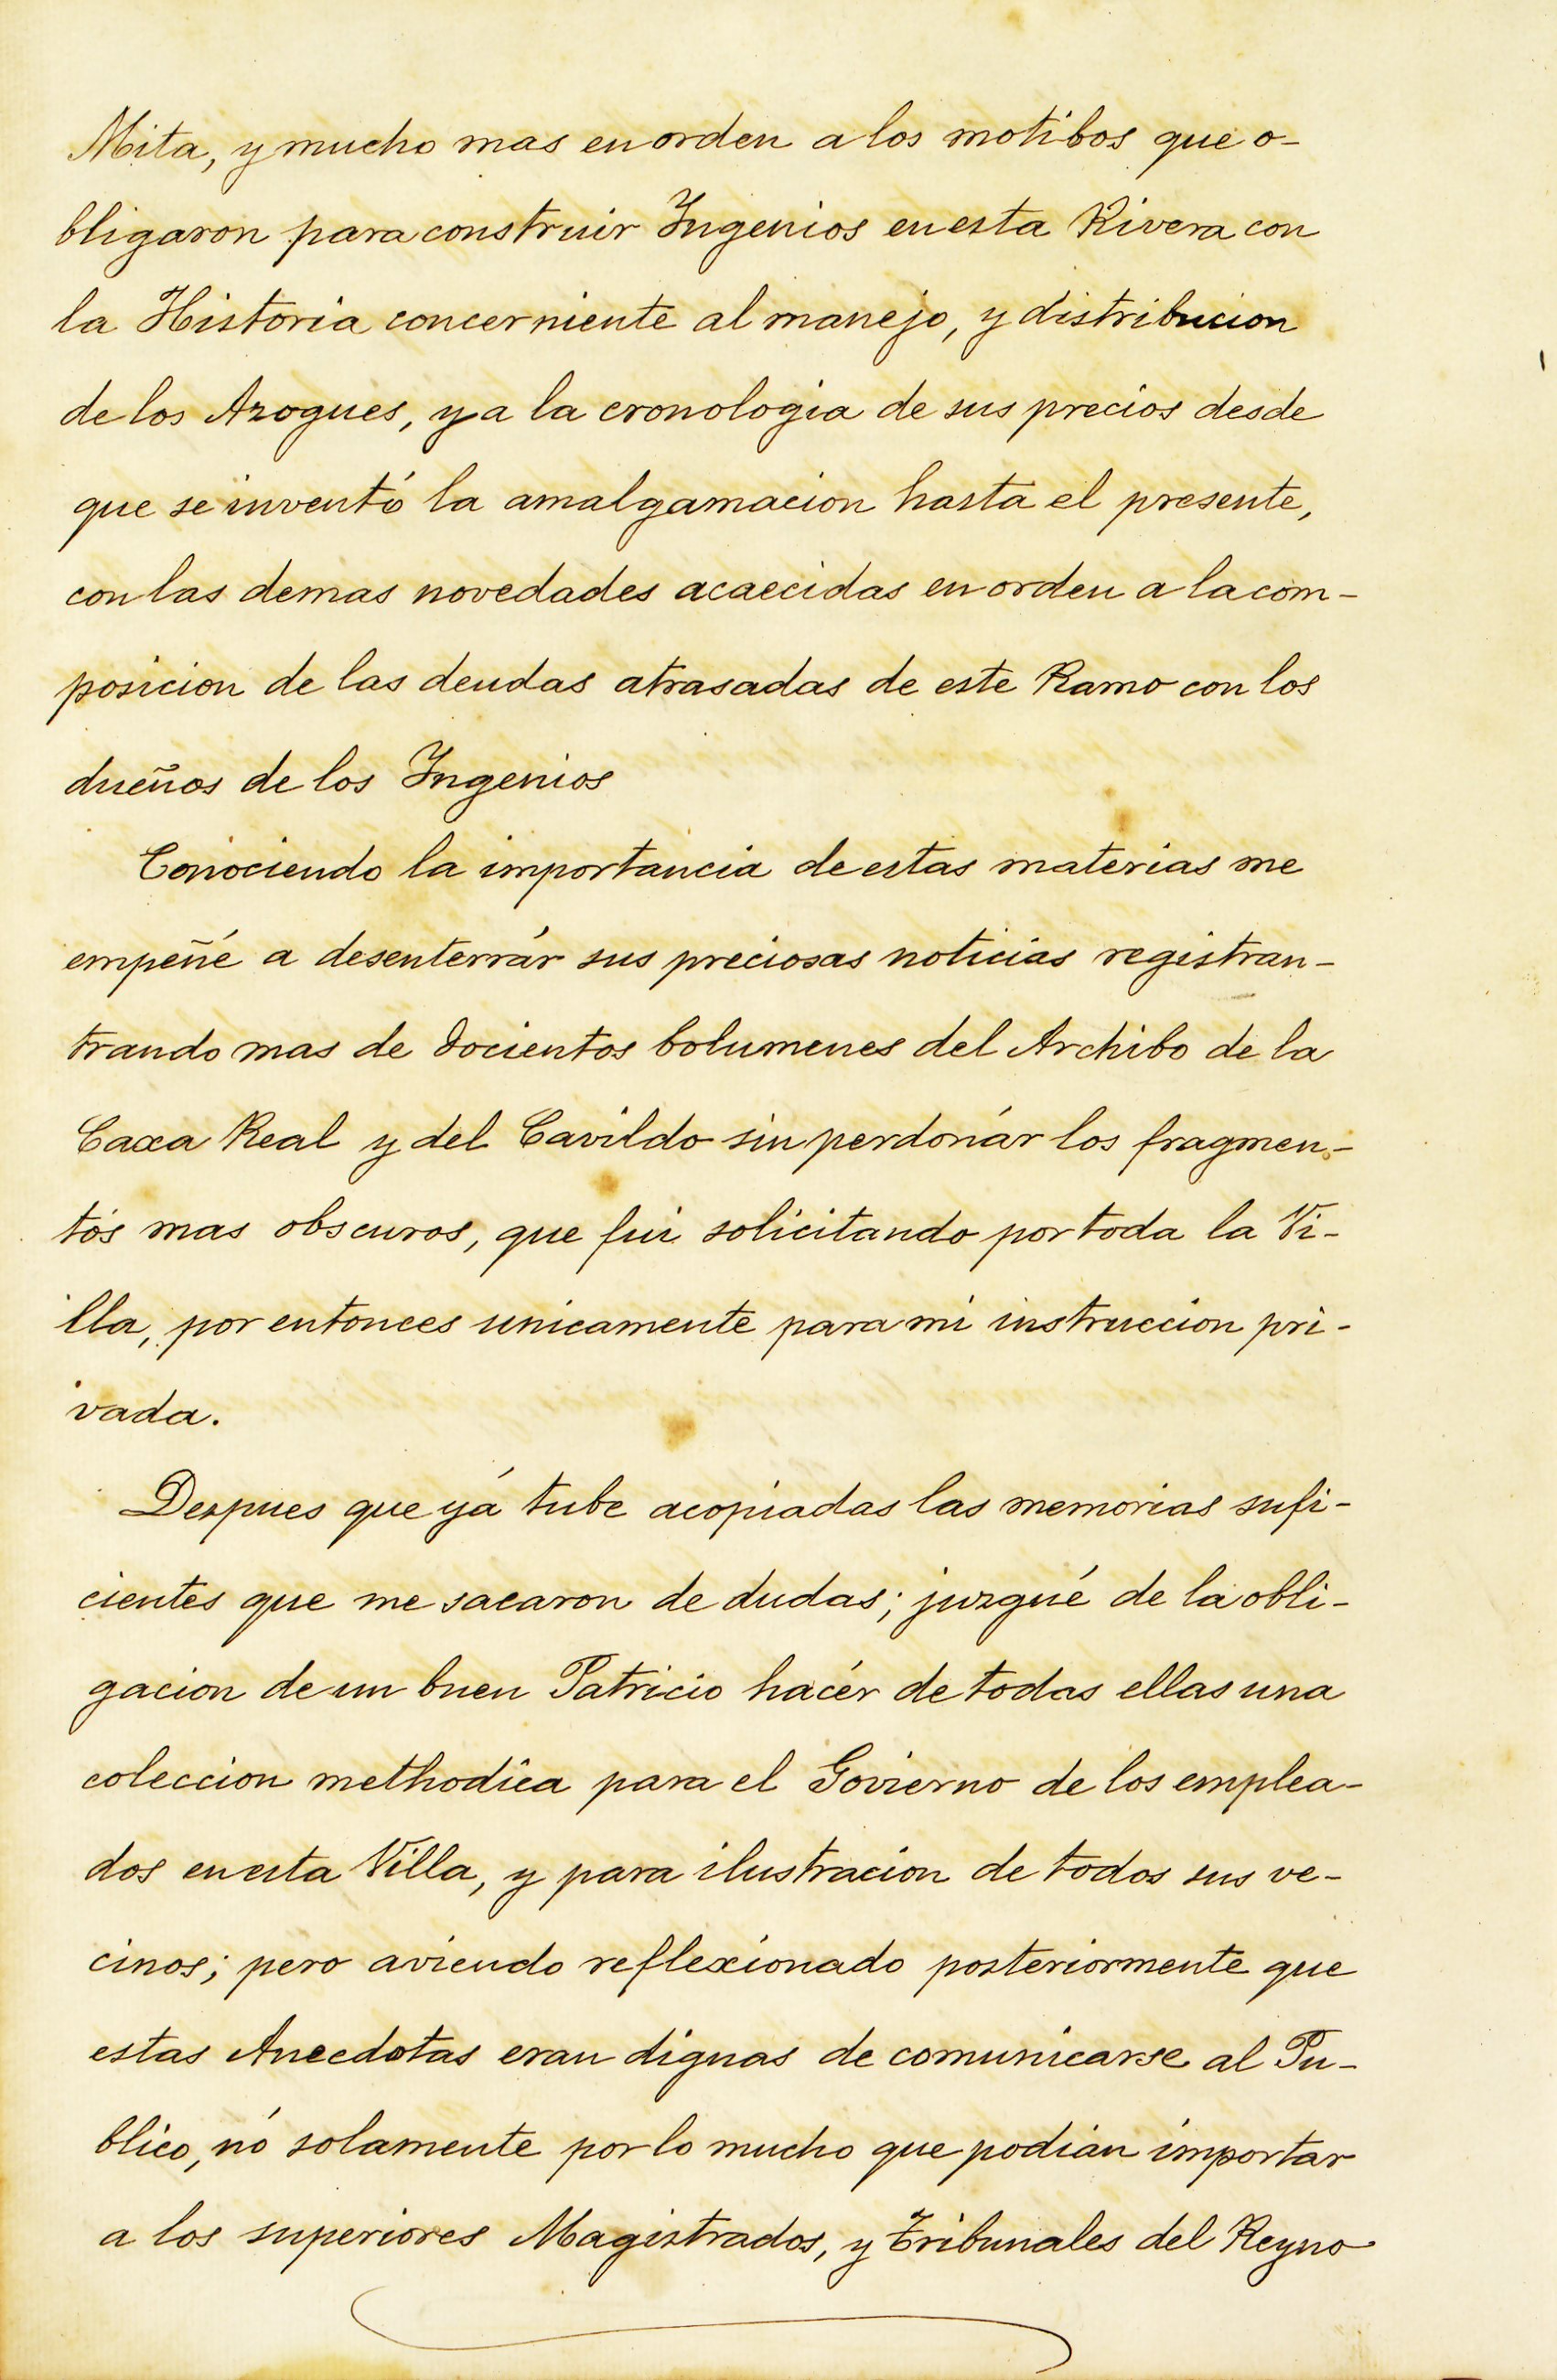 Mita, y mucho mas en orden a los motibos que o-
bligaron para construir Ingenios en esta Rivera con
la Historia concerniente al manejo, y distribucion
de los Azogues, y a la cronologia de sus precios desde
que se inventó la amalgamacion hasta el presente,
con las demas novedades acaecidas en orden a la com-
posicion de las deudas atrasadas de este Ramo con los
dueños de los Ingenios
Conociendo la importancia de estas materias me
empeñé a desenterrár sus preciosas noticias registran-
trando mas de docientos bolumenes del Archibo de la
Caxa Real y del Cavildo sin perdonár los fragmen-
tos mas obscuros, que fui solicitando por toda la Vi-
lla, por entonces unicamente para mi instruccion pri-
vada.
Despues que yá tube acopiadas las memorias sufi-
cientes que me sacaron de dudas; juzgué de la obli-
gacion de un buen Patricio hacér de todas ellas una
coleccion methodica para el Govierno de los emplea-
dos en esta Villa, y para ilustracion de todos sus ve-
cinos; pero aviendo reflexionado posteriormente que
estas Anecdotas eran dignas de comunicarse al Pu-
blico, nó solamente por lo mucho que podian importar
a los superiores Magistrados, y Tribunales del Reyno